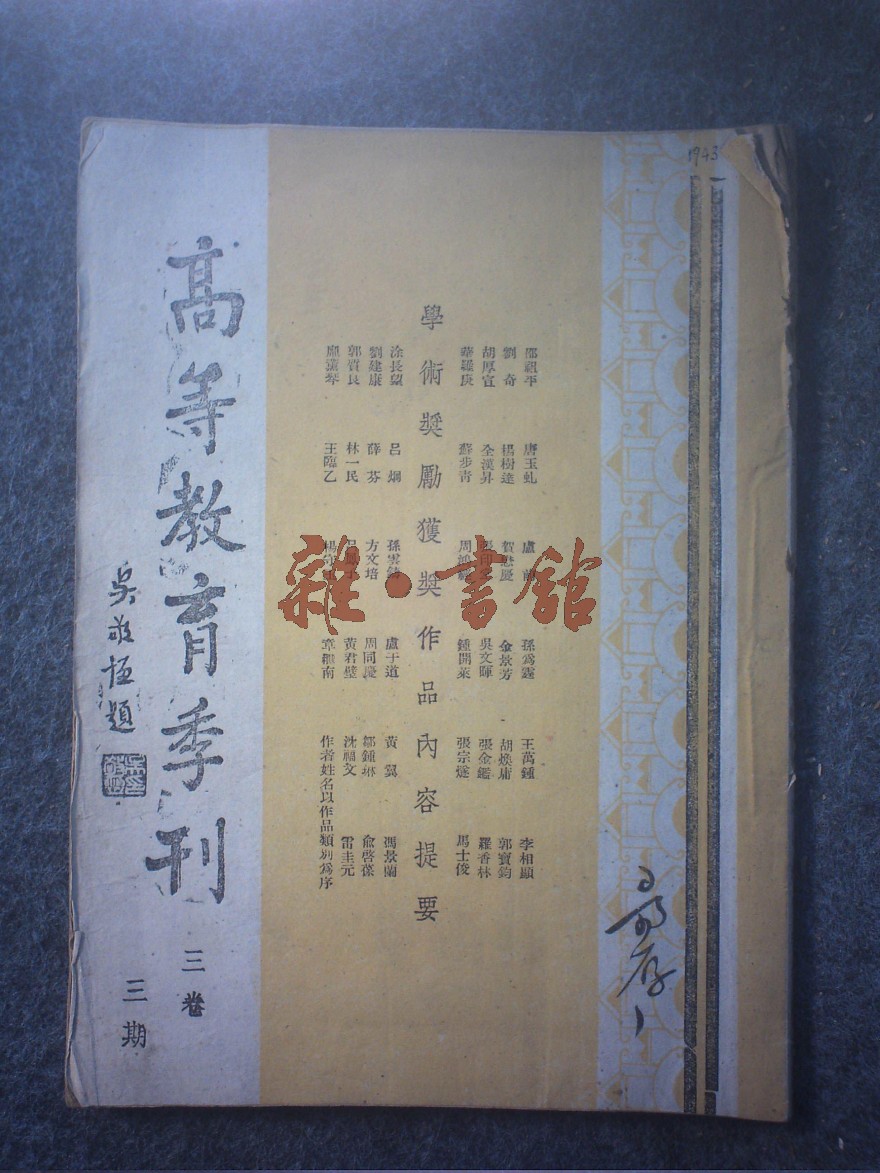 1943
邵祖平 唐玉虬 盧 孫爲霆 王萬鍾 李相顯
劉奇 楊樹達 賀懋慶 金景芳 胡煥庸 郭寶鈞
胡厚宣 全漢昇 吳文暉 張金鑑 羅香林
華羅庚 蘇步青 周鴻經 鍾開萊 張宗燧 馬士俊
學術獎勵獲獎作品內容提要
涂長望 呂炯 孫雲鑄 盧于道 黃翼 馮景蘭
劉建康 薛芬 方文培 周同慶 鄒鍾琳 俞啓葆
郭質良 林一民 黃君璧 沈福文 雷圭元
王臨乙 楊守玉 章繼南 作者姓名以作品類別爲序
雜·書館
高等教育季刊
三卷
三期
吳敬恆題